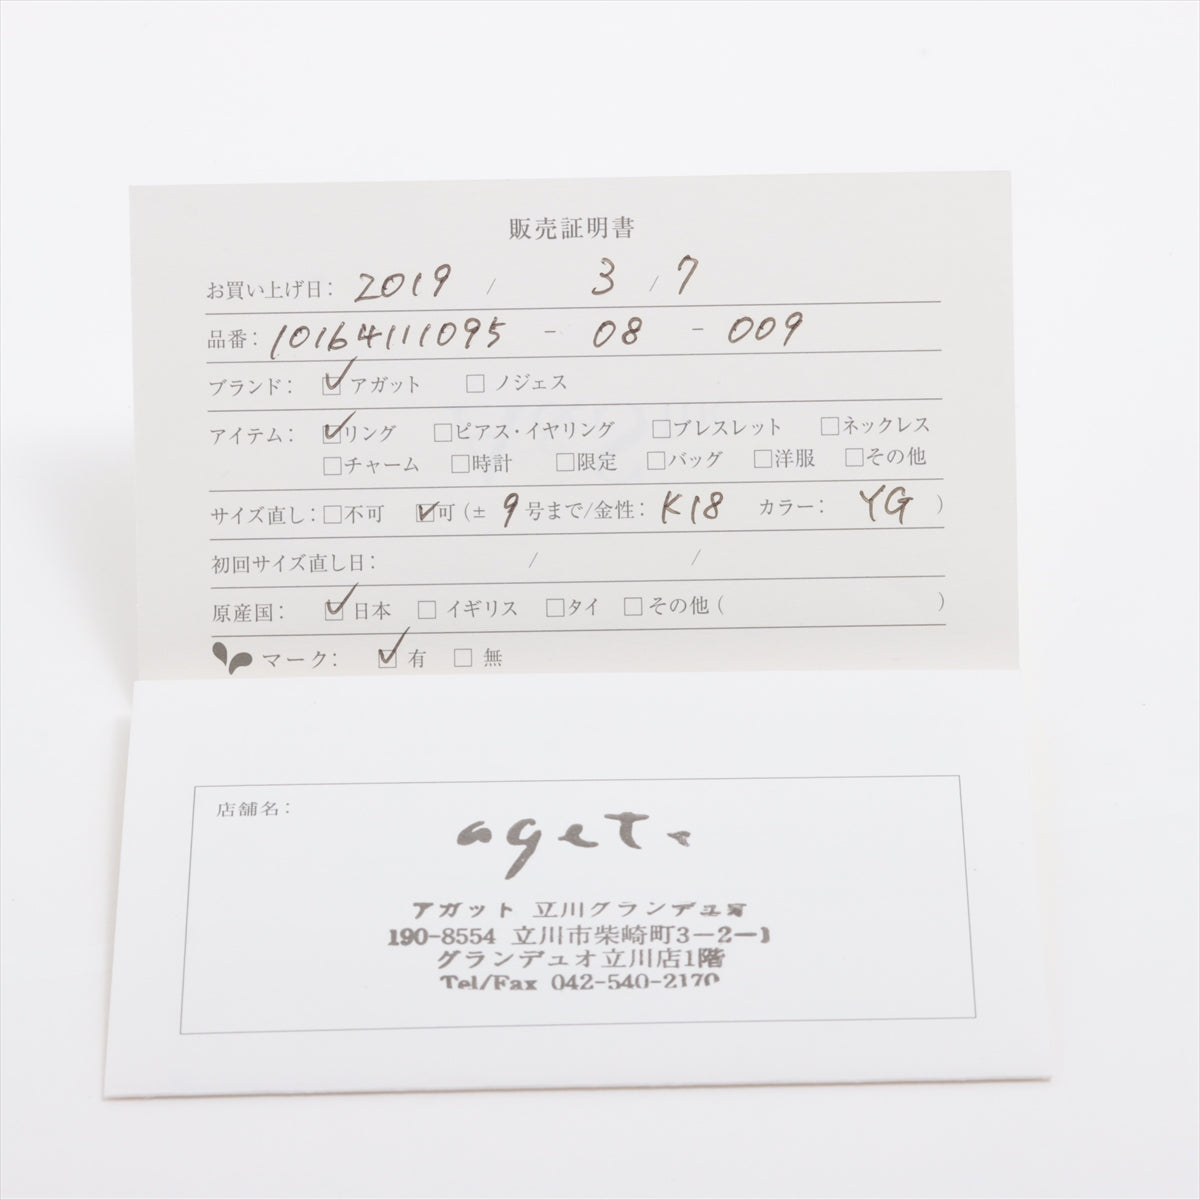 販売証明書
お買い上げ日: 2019 / 3 / 7
品番: 10164111095 - 08 - 009
ブランド: ☑アガット □ノジェス
アイテム: ☑リング □ピアス・イヤリング □ブレスレット □ネックレス
□チャーム □時計 □限定 □バッグ □洋服 □その他
サイズ直し: □不可 ☑可 (± 9 号まで/金性: K18 カラー: YG )
初回サイズ直し日: / /
原産国: ☑日本 □イギリス □タイ □その他 ( )
マーク: ☑有 □無
店舗名:
agete
アガット 立川グランデュオ
190-8554 立川市柴崎町3-2-1
グランデュオ立川店1階
Tel/Fax 042-540-2170